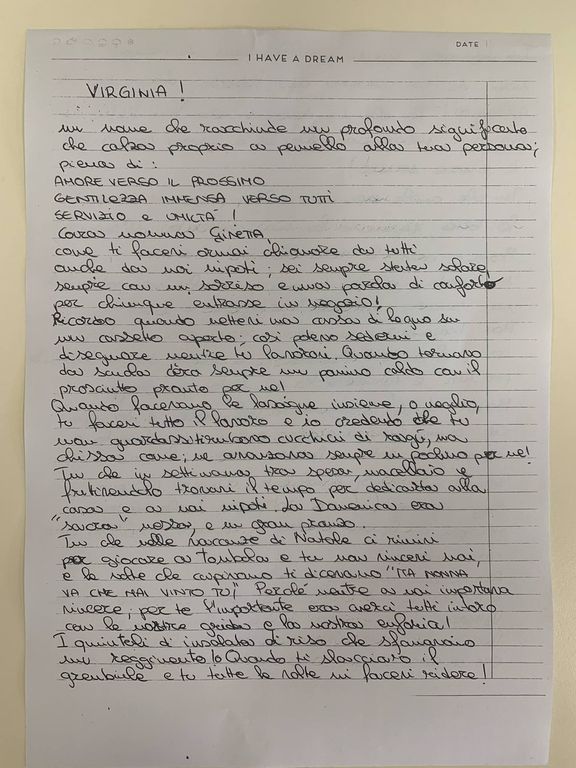 DATE
I HAVE A DREAM
VIRGINIA !
un nome che racchiude un profondo significato
che calza proprio a pennello alla tua persona;
piena di :
AMORE VERSO IL PROSSIMO
GENTILEZZA IMMENSA VERSO TUTTI
SERVIZIO e UMILTÀ !
Cara nonna GINETTA,
come ti facevi ormai chiamare da tutti
anche da noi nipoti; sei sempre stata solare,
sempre con un sorriso e una parola di conforto
per chiunque entrasse in negozio!
Ricordo quando mettevi una cassa di legno su
un cassetto aperto; così potevo sedermi e
disegnare mentre tu lavoravi. Quando tornavo
da scuola c'era sempre un panino caldo con il
prosciutto pronto per me!
Quando facevamo le lasagne insieme, o meglio,
tu facevi tutto il lavoro e io credendo che tu
non guardassi rubavo cucchiai di ragù, ma
chissà come; ne avanzava sempre un pochino per me!
Tu che in settimana tra spesa, macellaio e
fruttivendolo trovavi il tempo per dedicarti alla
casa e a noi nipoti. La Domenica era
"sacra" messa, e un gran pranzo.
Tu che nelle vacanze di Natale ci riunivi
per giocare a Tombola e tu non vincevi mai,
e le volte che capitavano ti dicevamo "MA NONNA
VA CHE HAI VINTO TU," Perché mentre a noi importava
vincere; per te l'importante era averci tutti intorno
con le nostre grida e la nostra euforia!
I quintali di insalata di riso che sfamavano
un reggimento! o Quando ti slacciavo il
grembiule e tu tutte le volte mi facevi ridere!